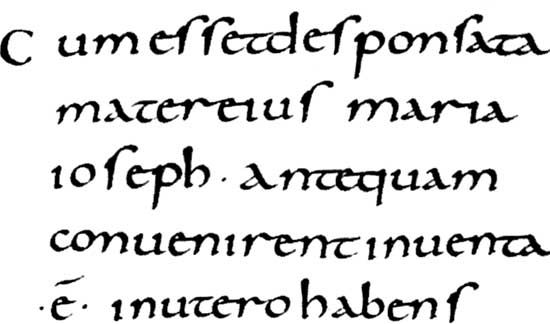 C umeſſetdeſponſata
matereiuſ maria
ioſeph · antequam
conuenirent inuenta
· ē · inuterohabenſ